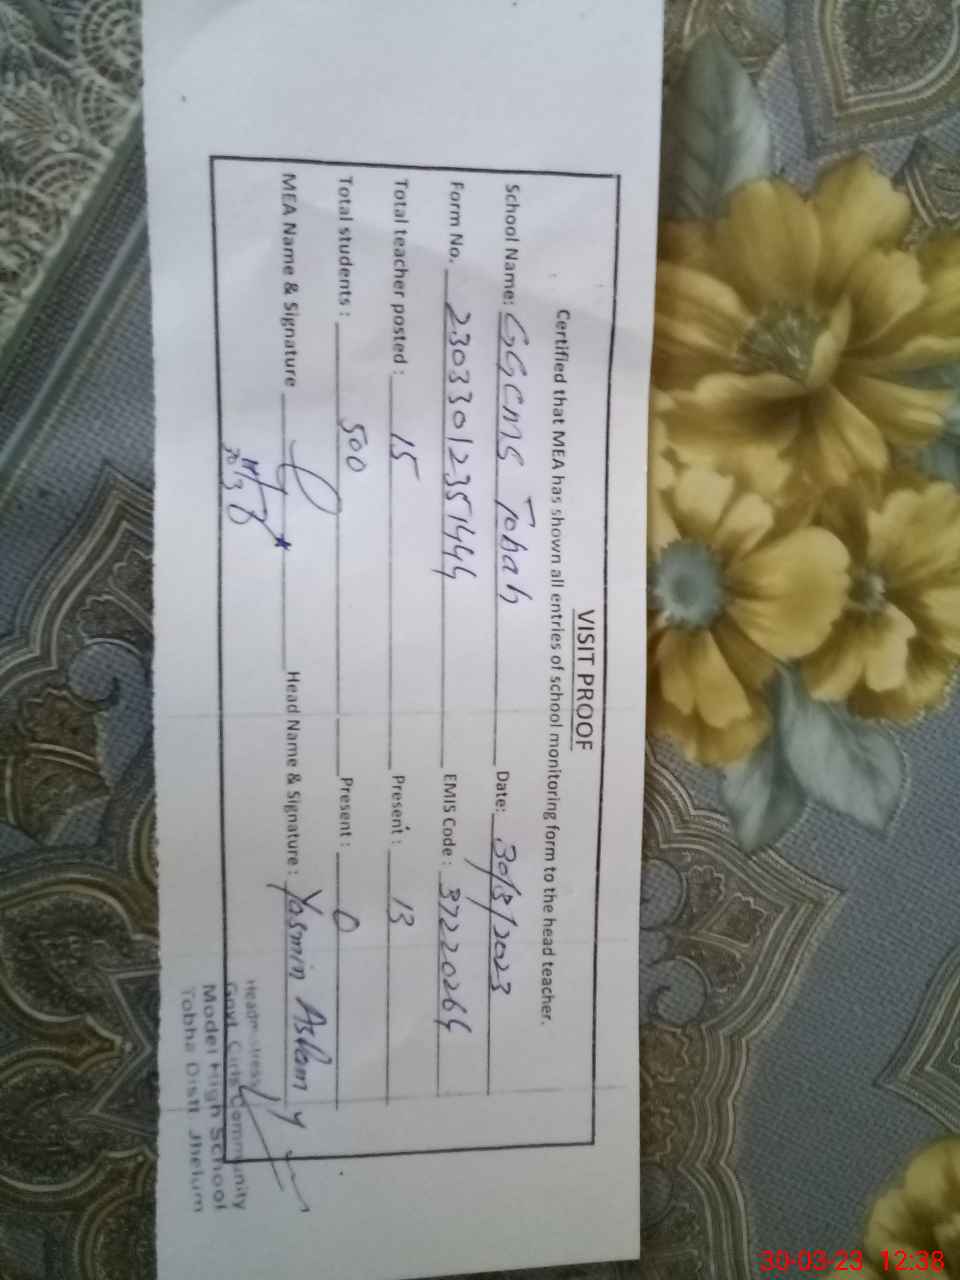 VISIT PROOF
Certified that MEA has shown all entries of school monitoring form to the head teacher.
School Name: GGCMS Tobah Date: 30/3/2023
Form No. 23033012351444 EMIS Code : 37220264
Total teacher posted : 15 Present : 13
Total students : 500 Present : 0
MEA Name & Signature Head Name & Signature : Yasmin Aslam
Headmistress
Govt. Girls Community
Model High School
Tobha Distt. Jhelum
30-03-23 12:38